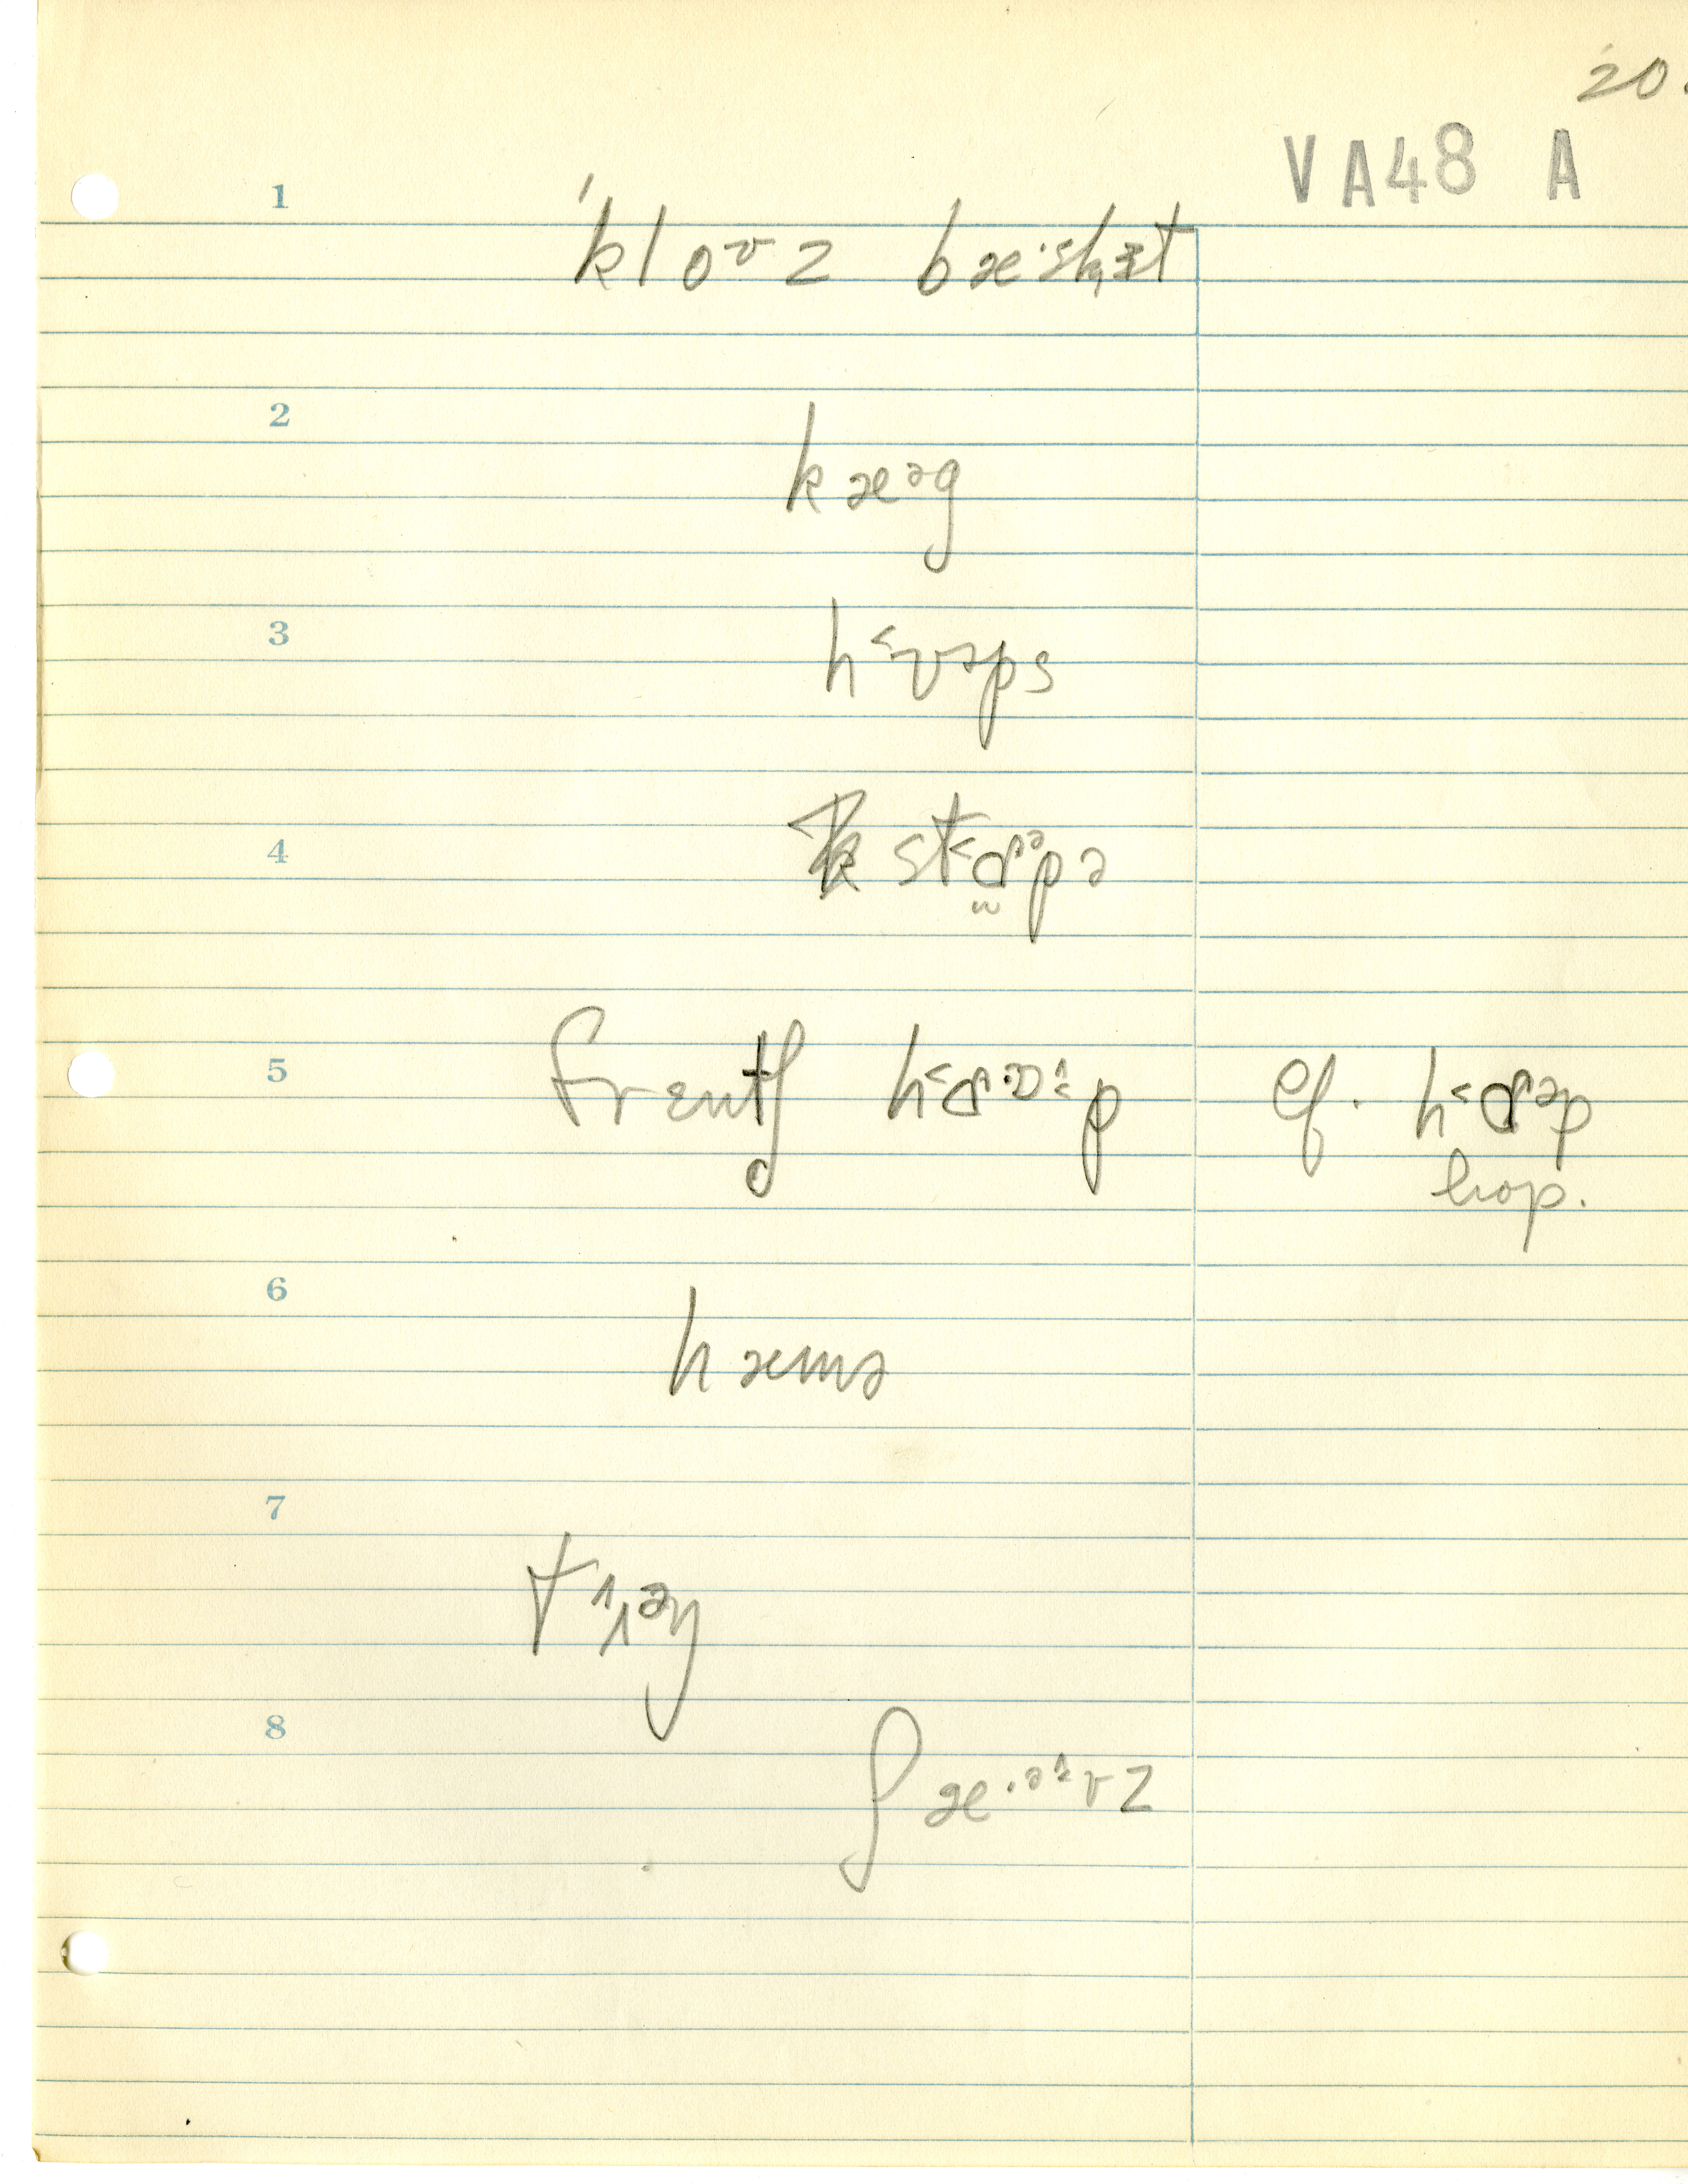 20.
VA48 A
1
ˈkloᶷz bæ·skɪ̵t
2
kæᵊg
3
hʊ˂əps
4
stɒ˂ᵊpə
5
frɛntʃ hɒ˂·ɒ^p cf. hɒ˂ᵊp
hop.
6
hæmə
7
8
ʃæ·ᵊ^vz